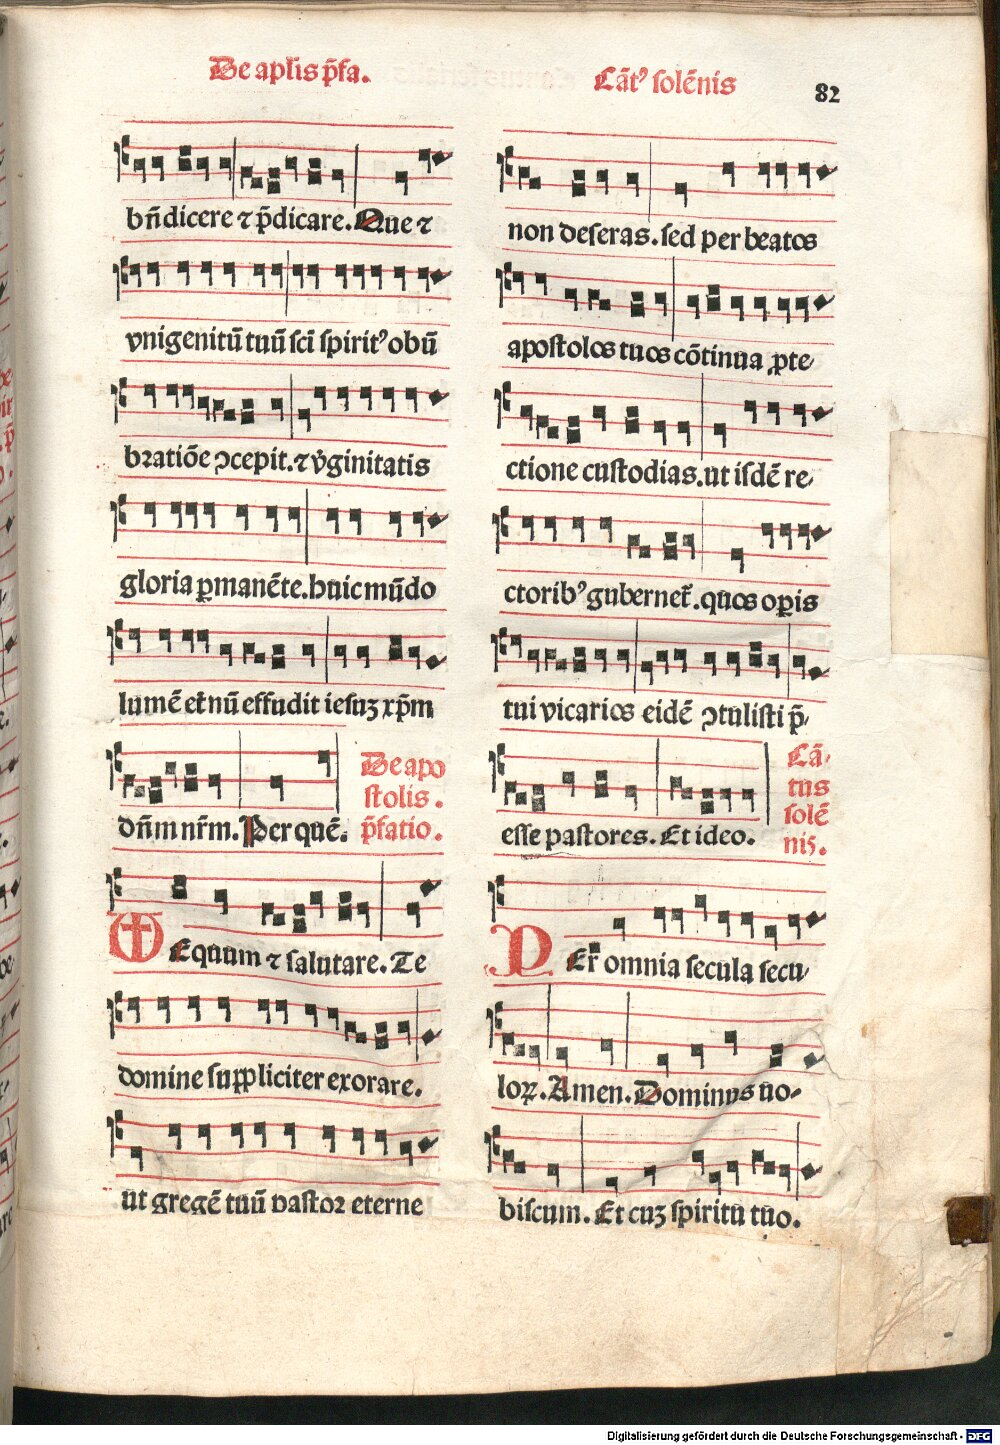 De apl'is p̄fa.
Cāt⁹ solēnis
82
bn̄dicere ⁊ p̄dicare. Que ⁊
vnigenitū tuū sci̅ spirit⁹ obū
bꝛatiōe ↄcepit. ⁊ v̄ginitatis
gloria ꝑmanēte. huic mūdo
lumē et̄nū effudit iesuꝫ xp̄m
dn̄m nr̄m. Per quē.
De apo
stolis.
p̄fatio.
Equum ⁊ salutare. Te
domine suppliciter exorare.
ut gregē tuū pastoꝛ eterne
non deseras. sed per beatos
apostolos tuos cōtinua ꝓte⸗
ctione custodias. ut iisdē re⸗
ctorib⁹ gubernet̄. quos oꝑis
tui vicarios eidē ↄtulisti p̄⸗
esse pastores. Et ideo.
Cā⸗
tus
solē
nis.
PEr omnia secula secu⸗
loꝝ. Amen. Dominus uo⸗
biscum. Et cuꝫ spiritu tuo.
Digitalisierung gefördert durch die Deutsche Forschungsgemeinschaft - DFG